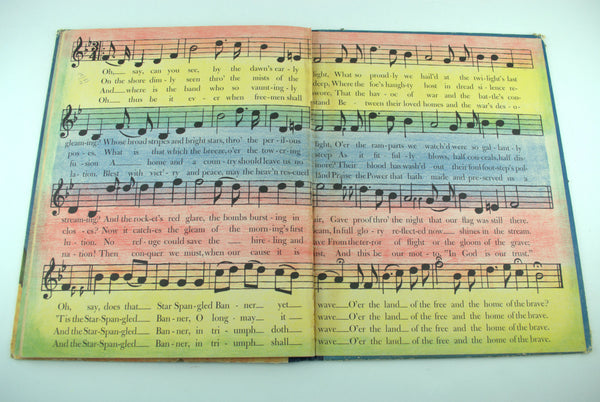 Oh, say, can you see, by the dawn's ear-ly light, What so proud-ly we hail'd at the twi-light's last
On the shore dim-ly seen thro' the mists of the deep, Where the foe's haugh-ty host in dread si-lence re-
And where is the band who so vaunt-ing-ly swore, That the hav-oc of war and the bat-tle's con-
Oh thus be it ev-er when free-men shall stand Be-tween their loved homes and the war's des-o-
gleam-ing? Whose broad stripes and bright stars, thro' the per-il-ous fight, O'er the ram-parts we watch'd were so gal-lant-ly
pos-es. What is that which the breeze, o'er the tow-er-ing steep As it fit-ful-ly blows, half con-ceals, half dis-
fu-sion A home and a coun-try should leave us no more? Their blood has wash'd out their foul foot-step's pol-
la-tion, Blest with vict'ry and peace, may the heav'n res-cued land Praise the Power that hath made and pre-served us a
stream-ing? And the rock-et's red glare, the bombs burst-ing in air, Gave proof thro' the night that our flag was still there.
clos-es? Now it catch-es the gleam of the morn-ing's first beam, In full glo-ry re-flect-ed now shines in the stream.
lu-tion. No ref-uge could save the hire-ling and slave From the ter-ror of flight or the gloom of the grave;
na-tion! Then con-quer we must, when our cause it is And this be our mot-to: "In God is our trust."
Oh, say, does that Star-Span-gled Ban-ner yet wave O'er the land of the free and the home of the brave?
'Tis the Star-Span-gled Ban-ner, O long may it wave O'er the land of the free and the home of the brave.
And the Star-Span-gled Ban-ner, in tri-umph doth wave O'er the land of the free and the home of the brave.
And the Star-Span-gled Ban-ner, in tri-umph shall wave O'er the land of the free and the home of the brave.